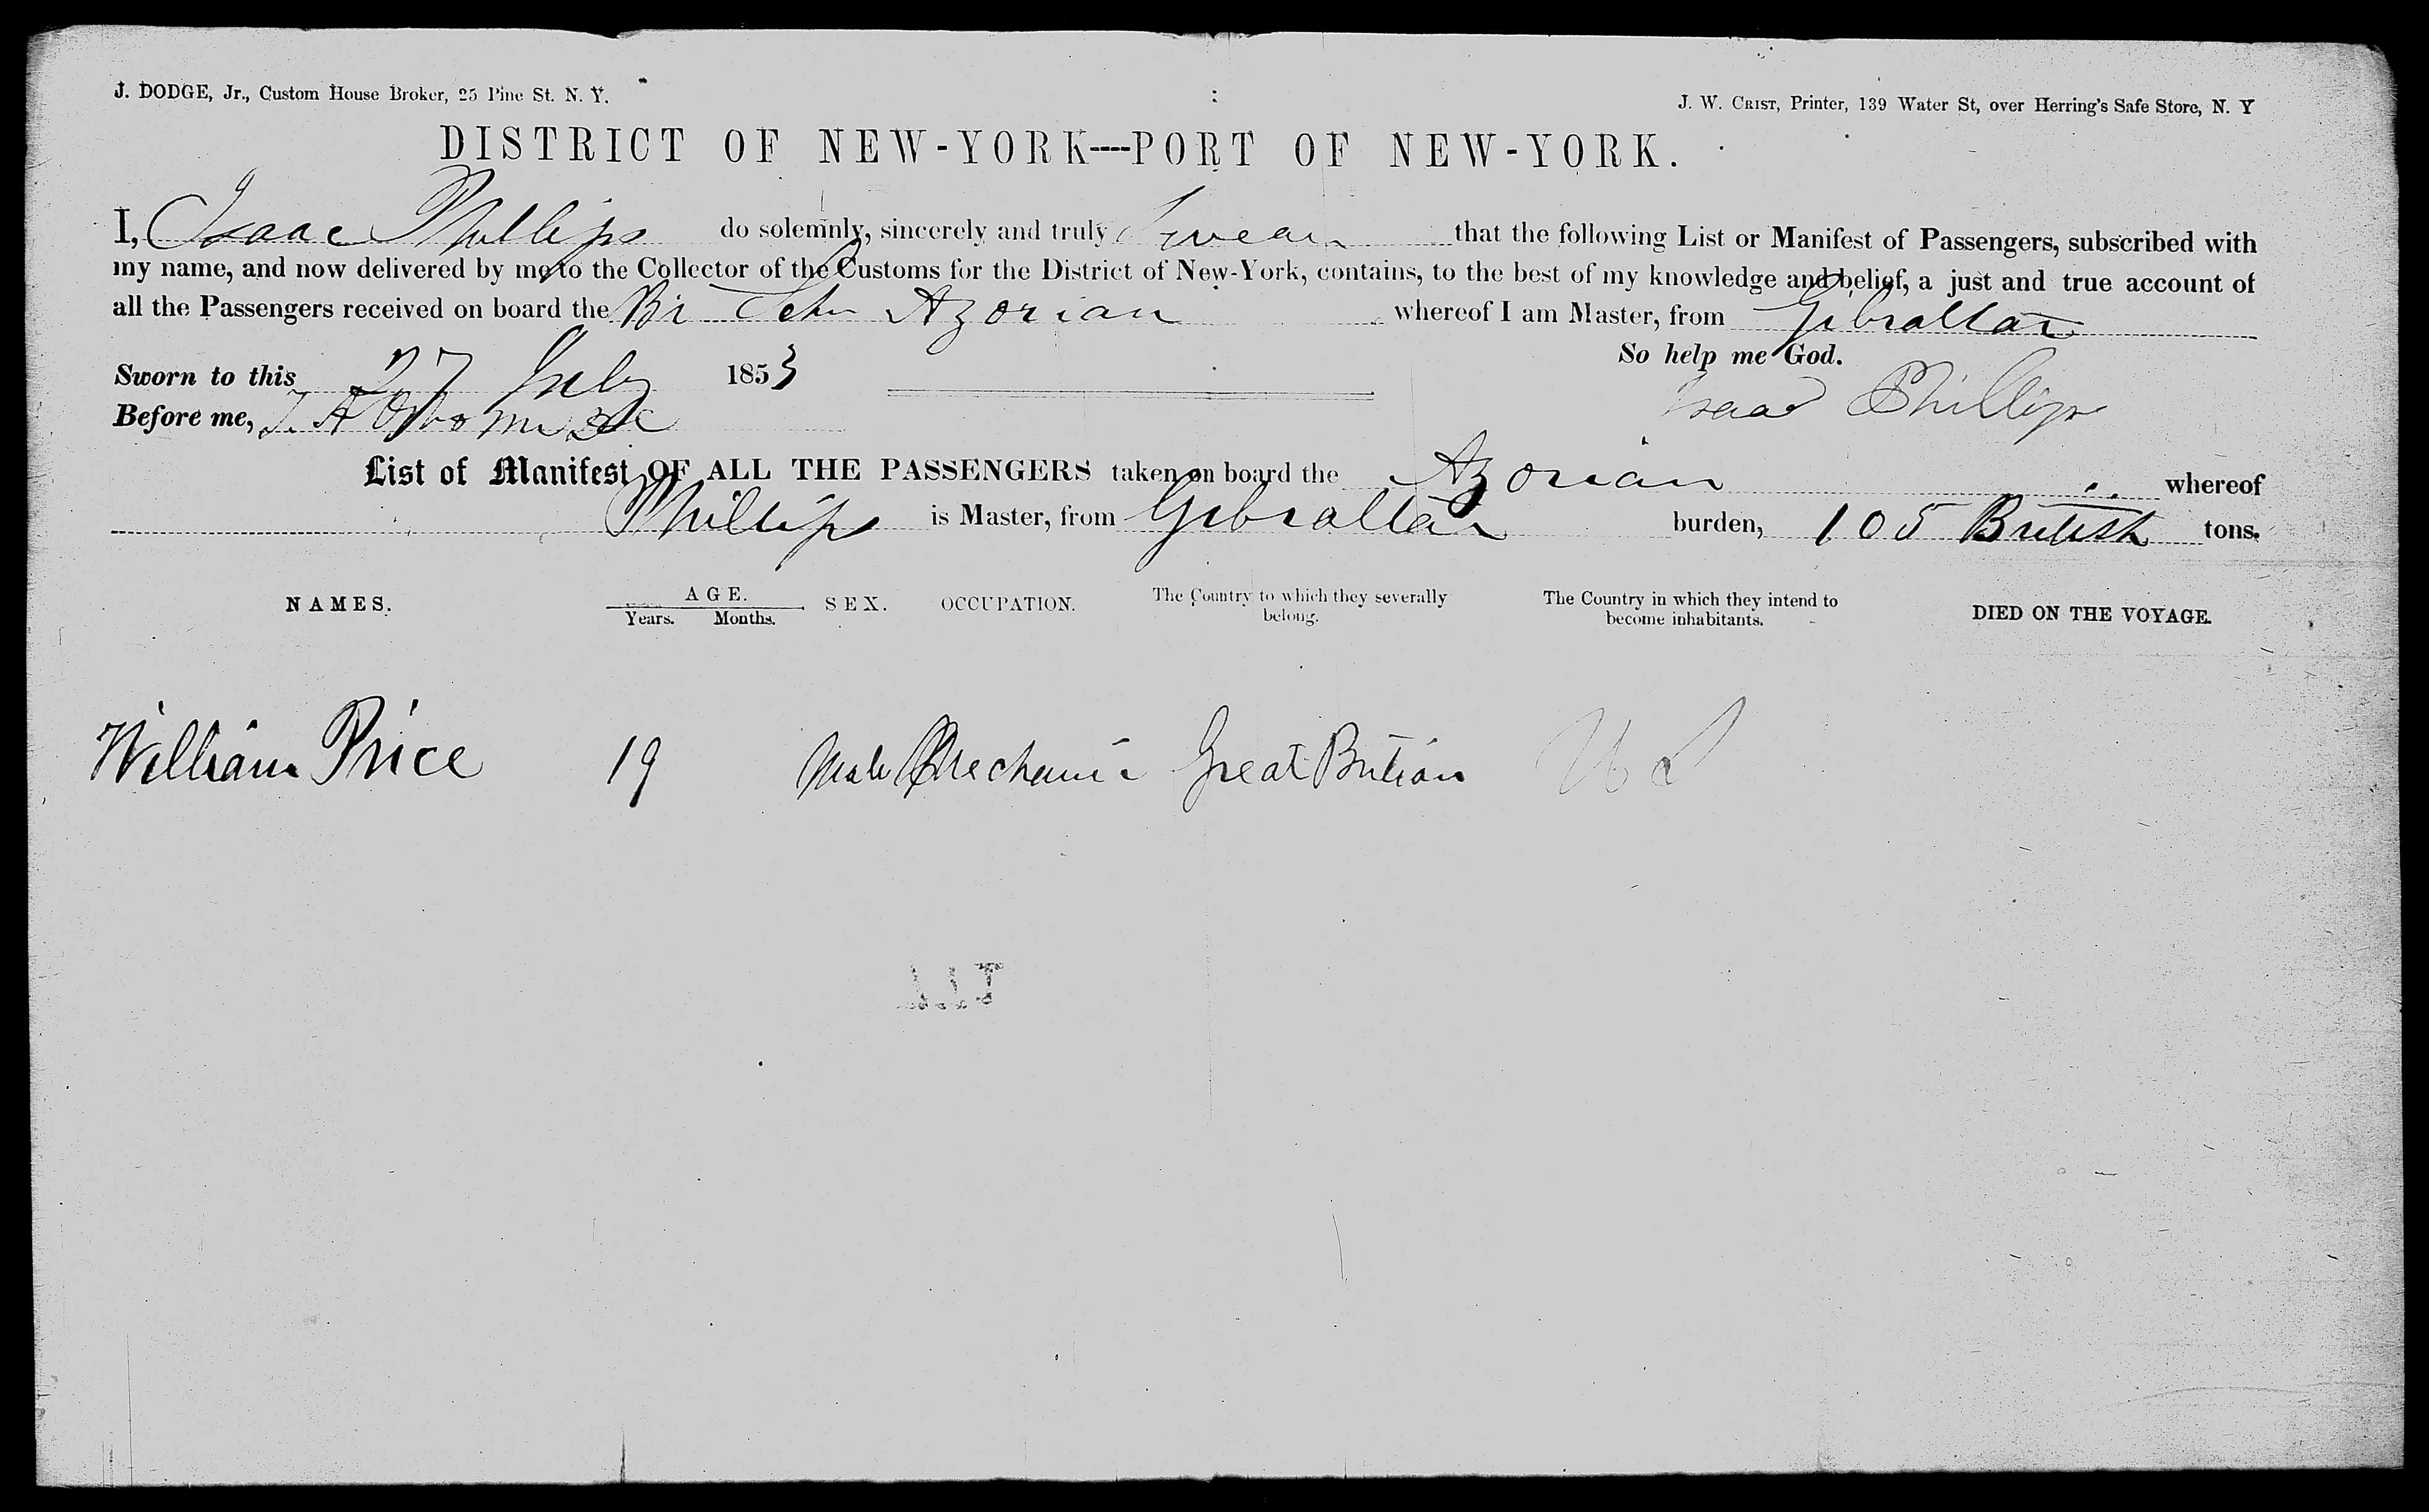 J. DODGE, Jr., Custom House Broker, 25 Pine St. N. Y.
J. W. CRIST, Printer, 139 Water St, over Herring's Safe Store, N. Y
DISTRICT OF NEW-YORK—PORT OF NEW-YORK.
I, Isaac Phillips do solemnly, sincerely and truly Swear that the following List or Manifest of Passengers, subscribed with
my name, and now delivered by me to the Collector of the Customs for the District of New-York, contains, to the best of my knowledge and belief, a just and true account of
all the Passengers received on board the Br Schr Azorian whereof I am Master, from Gibraltar
So help me God.
Sworn to this 27 July 1853
Isaac Phillips
Before me,
List of Manifest OF ALL THE PASSENGERS taken on board the Azorian whereof
Phillips is Master, from Gibraltar burden, 105 British tons.
NAMES. AGE. SEX. OCCUPATION. The Country to which they severally belong. The Country in which they intend to become inhabitants. DIED ON THE VOYAGE.
Years. Months.
William Price 19 Male Mechanic Great Britian U S